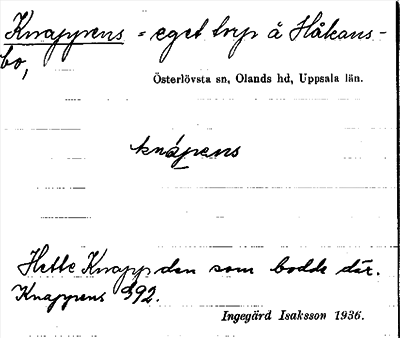 Knappens = eget torp å Håkans-
bo,
Österlövsta sn, Olands hd, Uppsala län.
knápens
Hette Knapp den som bodde där.
Knappens 392.
Ingegärd Isaksson 1936.